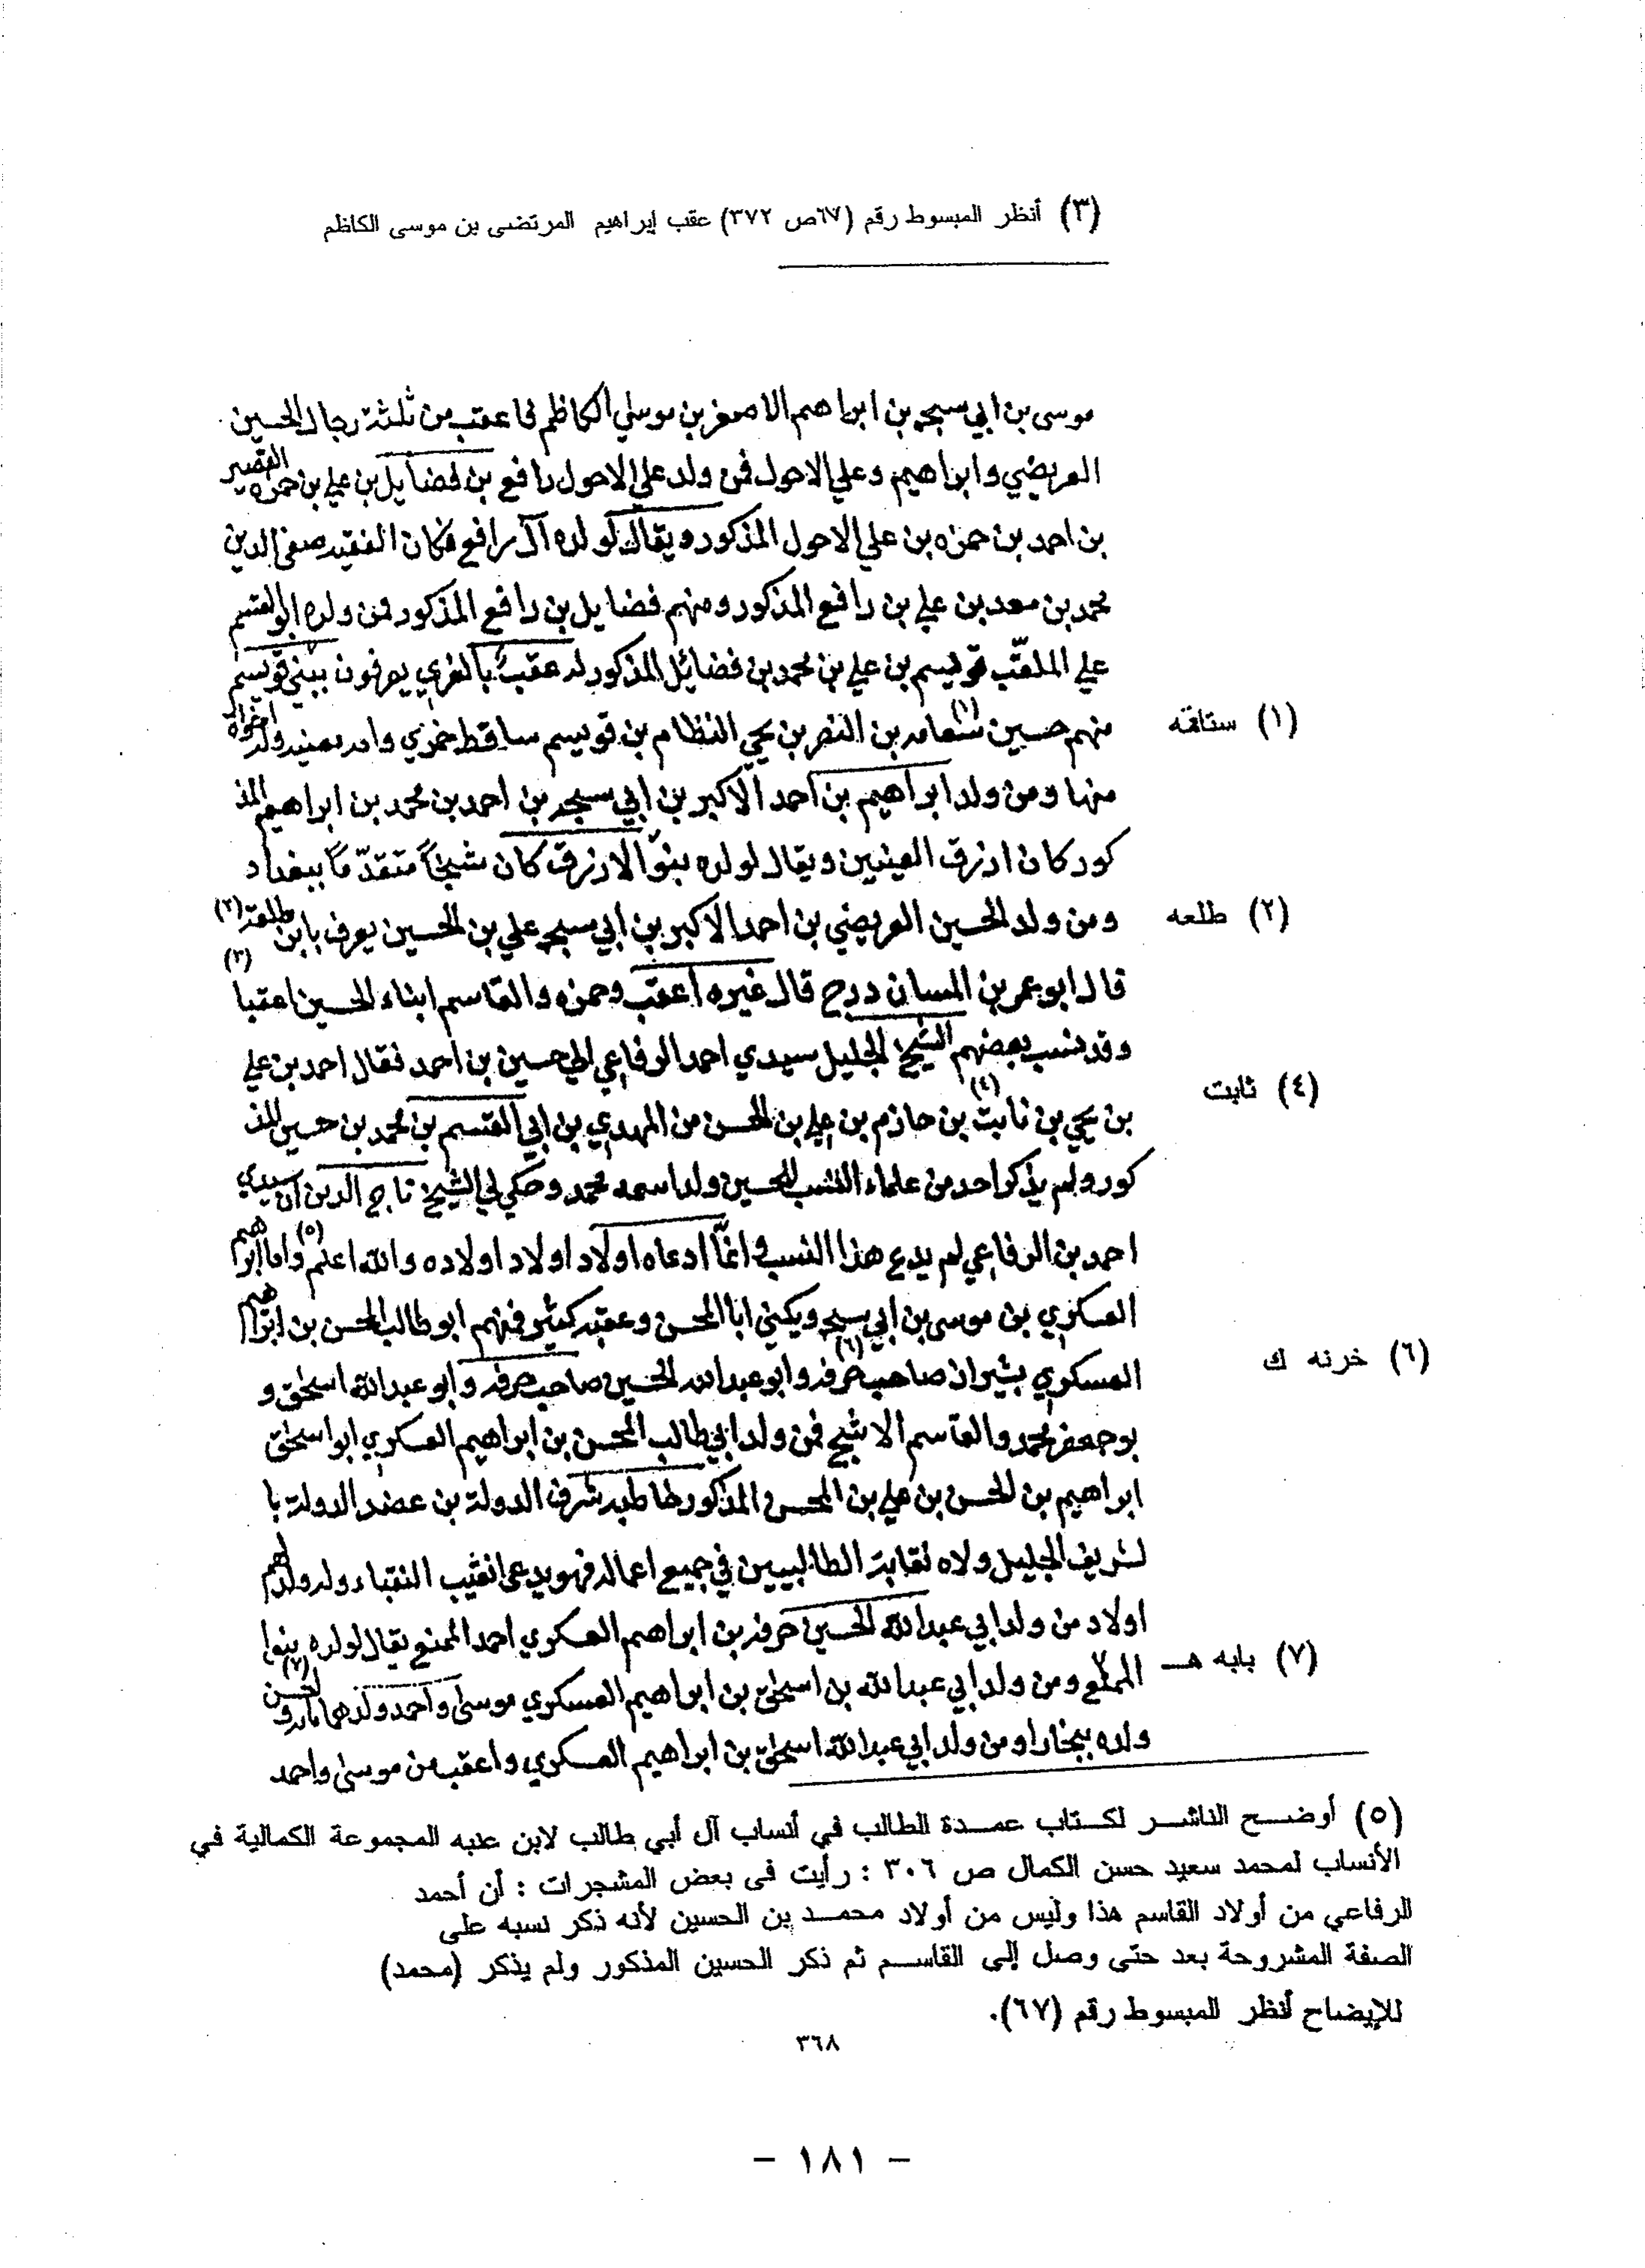 (٣) أنظر المبسوط رقم (٦٧ص ٣٧٢) عقب إبراهيم المرتضى بن موسى الكاظم
موسى بن ابي سبحه بن ابراهيم الاصغر بن موسى الكاظم فاعقب من ثلثة رجال الحسين
العريضي وابراهيم وعلي الاحول فمن ولد علي الاحول رافع بن فضايل بن علي بن حمزه القصير
بن احمد بن حمزه بن علي الاحول المذكور ويقال لولده آل رافع فكان الفقيه صفي الدين
محمد بن معد بن علي بن رافع المذكور ومنهم فضايل بن رافع المذكور فمن ولده ابو القسم
علي الملقب قويسم بن علي بن محمد بن فضائل المذكور له عقب بالغري يعرفون ببني قويسم
منهم حسين (١) بن النصر بن يحيى النظام بن قويسم ساقط خمري وامه مغنيه وله اخوة
منها ومن ولد ابراهيم بن احمد الاكبر بن ابي سبحه بن احمد بن محمد بن ابراهيم المذ
كور كان ازرق العينين ويقال لولده بنوا الازرق كان شيخاً متقدّماً ببغداد
ومن ولد الحسين العريضي بن احمد الاكبر بن ابي سبحه علي بن الحسين يعرف بابن طلعه (٢)
(٣)
قال ابو عمر بن المسان درج قال غيره اعقب وحمزه والقاسم ابناء الحسين اعقبا
وقد نسب بعضهم الشيخ الجليل سيدي احمد الرفاعي الى حسين بن احمد فقال احمد بن علي
بن يحيى بن نابت (٤) بن حازم بن علي بن الحسن من المهدي بن ابي القسم بن محمد بن حسين المذ
كور ولم يذكر احد من علماء النسب للحسين ولدا اسمه محمد وحكي لي الشيخ تاج الدين ان سيدي
احمد بن الرفاعي لم يدع هذا النسب وانمّا ادعاه اولاد اولاد اولاده والله اعلم (٥) واما ابراهيم
العسكري بن موسى بن ابي سبحه ويكنى ابا المحسن وعقبه كثير فمنهم ابو طالب المحسن بن ابراهيم
العسكري بشيراز صاحب (٦) وابو عبد الله الحسين صاحب وابو عبد الله اسحق و
بو جعفر محمد والقاسم الاشج فمن ولد ابي طالب المحسن بن ابراهيم العسكري ابو اسحق
ابراهيم بن الحسن بن علي بن المحسن المذكور خاطبه شرف الدولة بن عضد الدولة با
لشريف الجليل ولاه نقابة الطالبيين في جميع اعماله فهو يدعى نقيب النقباء وله ولدهم
اولاد من ولد ابي عبد الله الحسين بن ابراهيم العسكري احمد الممنع يقال لولده بنوا
الممنع ومن ولد ابي عبد الله بن اسحق بن ابراهيم العسكري موسى واحمد ولدهما (٧)
ولده ببخارا ومن ولد ابي عبد الله اسحق بن ابراهيم العسكري واعقب من موسى واحمد
(١) ستاقه
(٢) طلعه
(٤) ثابت
(٦) خرنه ك
(٧) بابه هـ
(٥) أوضح الناشر لكتاب عمدة الطالب في أنساب آل أبي طالب لابن عنبه المجموعة الكمالية في
الأنساب لمحمد سعيد حسن الكمال ص ٣٠٦ : رأيت فى بعض المشجرات : أن أحمد
الرفاعي من أولاد القاسم هذا وليس من أولاد محمد بن الحسين لأنه ذكر نسبه على
الصفة المشروحة بعد حتى وصل إلى القاسم ثم ذكر الحسين المذكور ولم يذكر (محمد)
للإيضاح أنظر المبسوط رقم (٦٧).
٣٦٨
- ١٨١ -